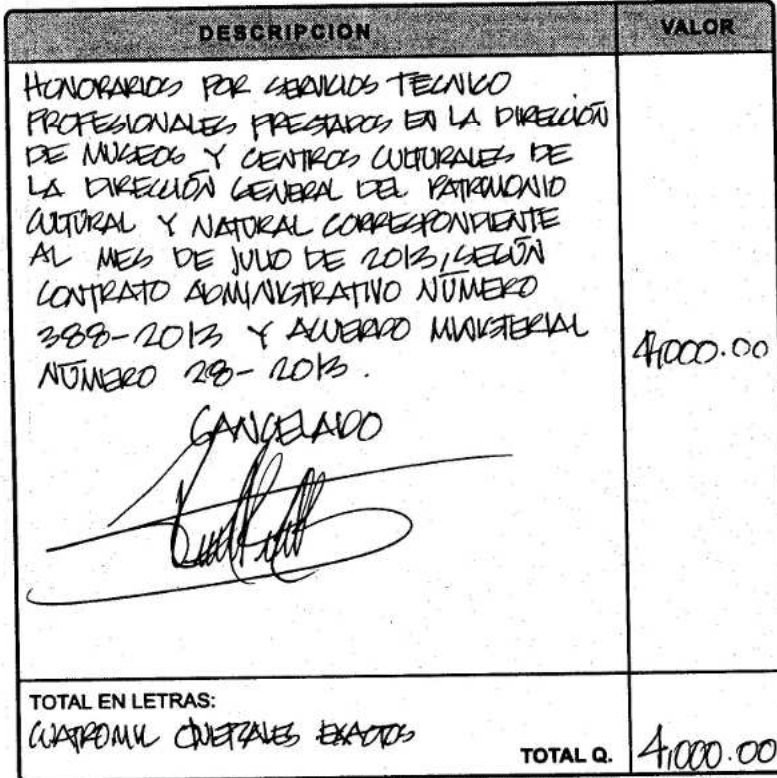 DESCRIPCION VALOR
HONORARIOS POR SERVICIOS TECNICO
PROFESIONALES PRESTADOS EN LA DIRECCIÓN
DE MUSEOS Y CENTROS CULTURALES DE
LA DIRECCIÓN GENERAL DEL PATRIMONIO
CULTURAL Y NATURAL CORRESPONDIENTE
AL MES DE JULIO DE 2013, SEGÚN
CONTRATO ADMINISTRATIVO NÚMERO
388-2013 Y ACUERDO MINISTERIAL
NÚMERO 28-2013.
4,000.00
CANCELADO
TOTAL EN LETRAS:
CUATROMIL QUETZALES EXACTOS
TOTAL Q. 4,000.00